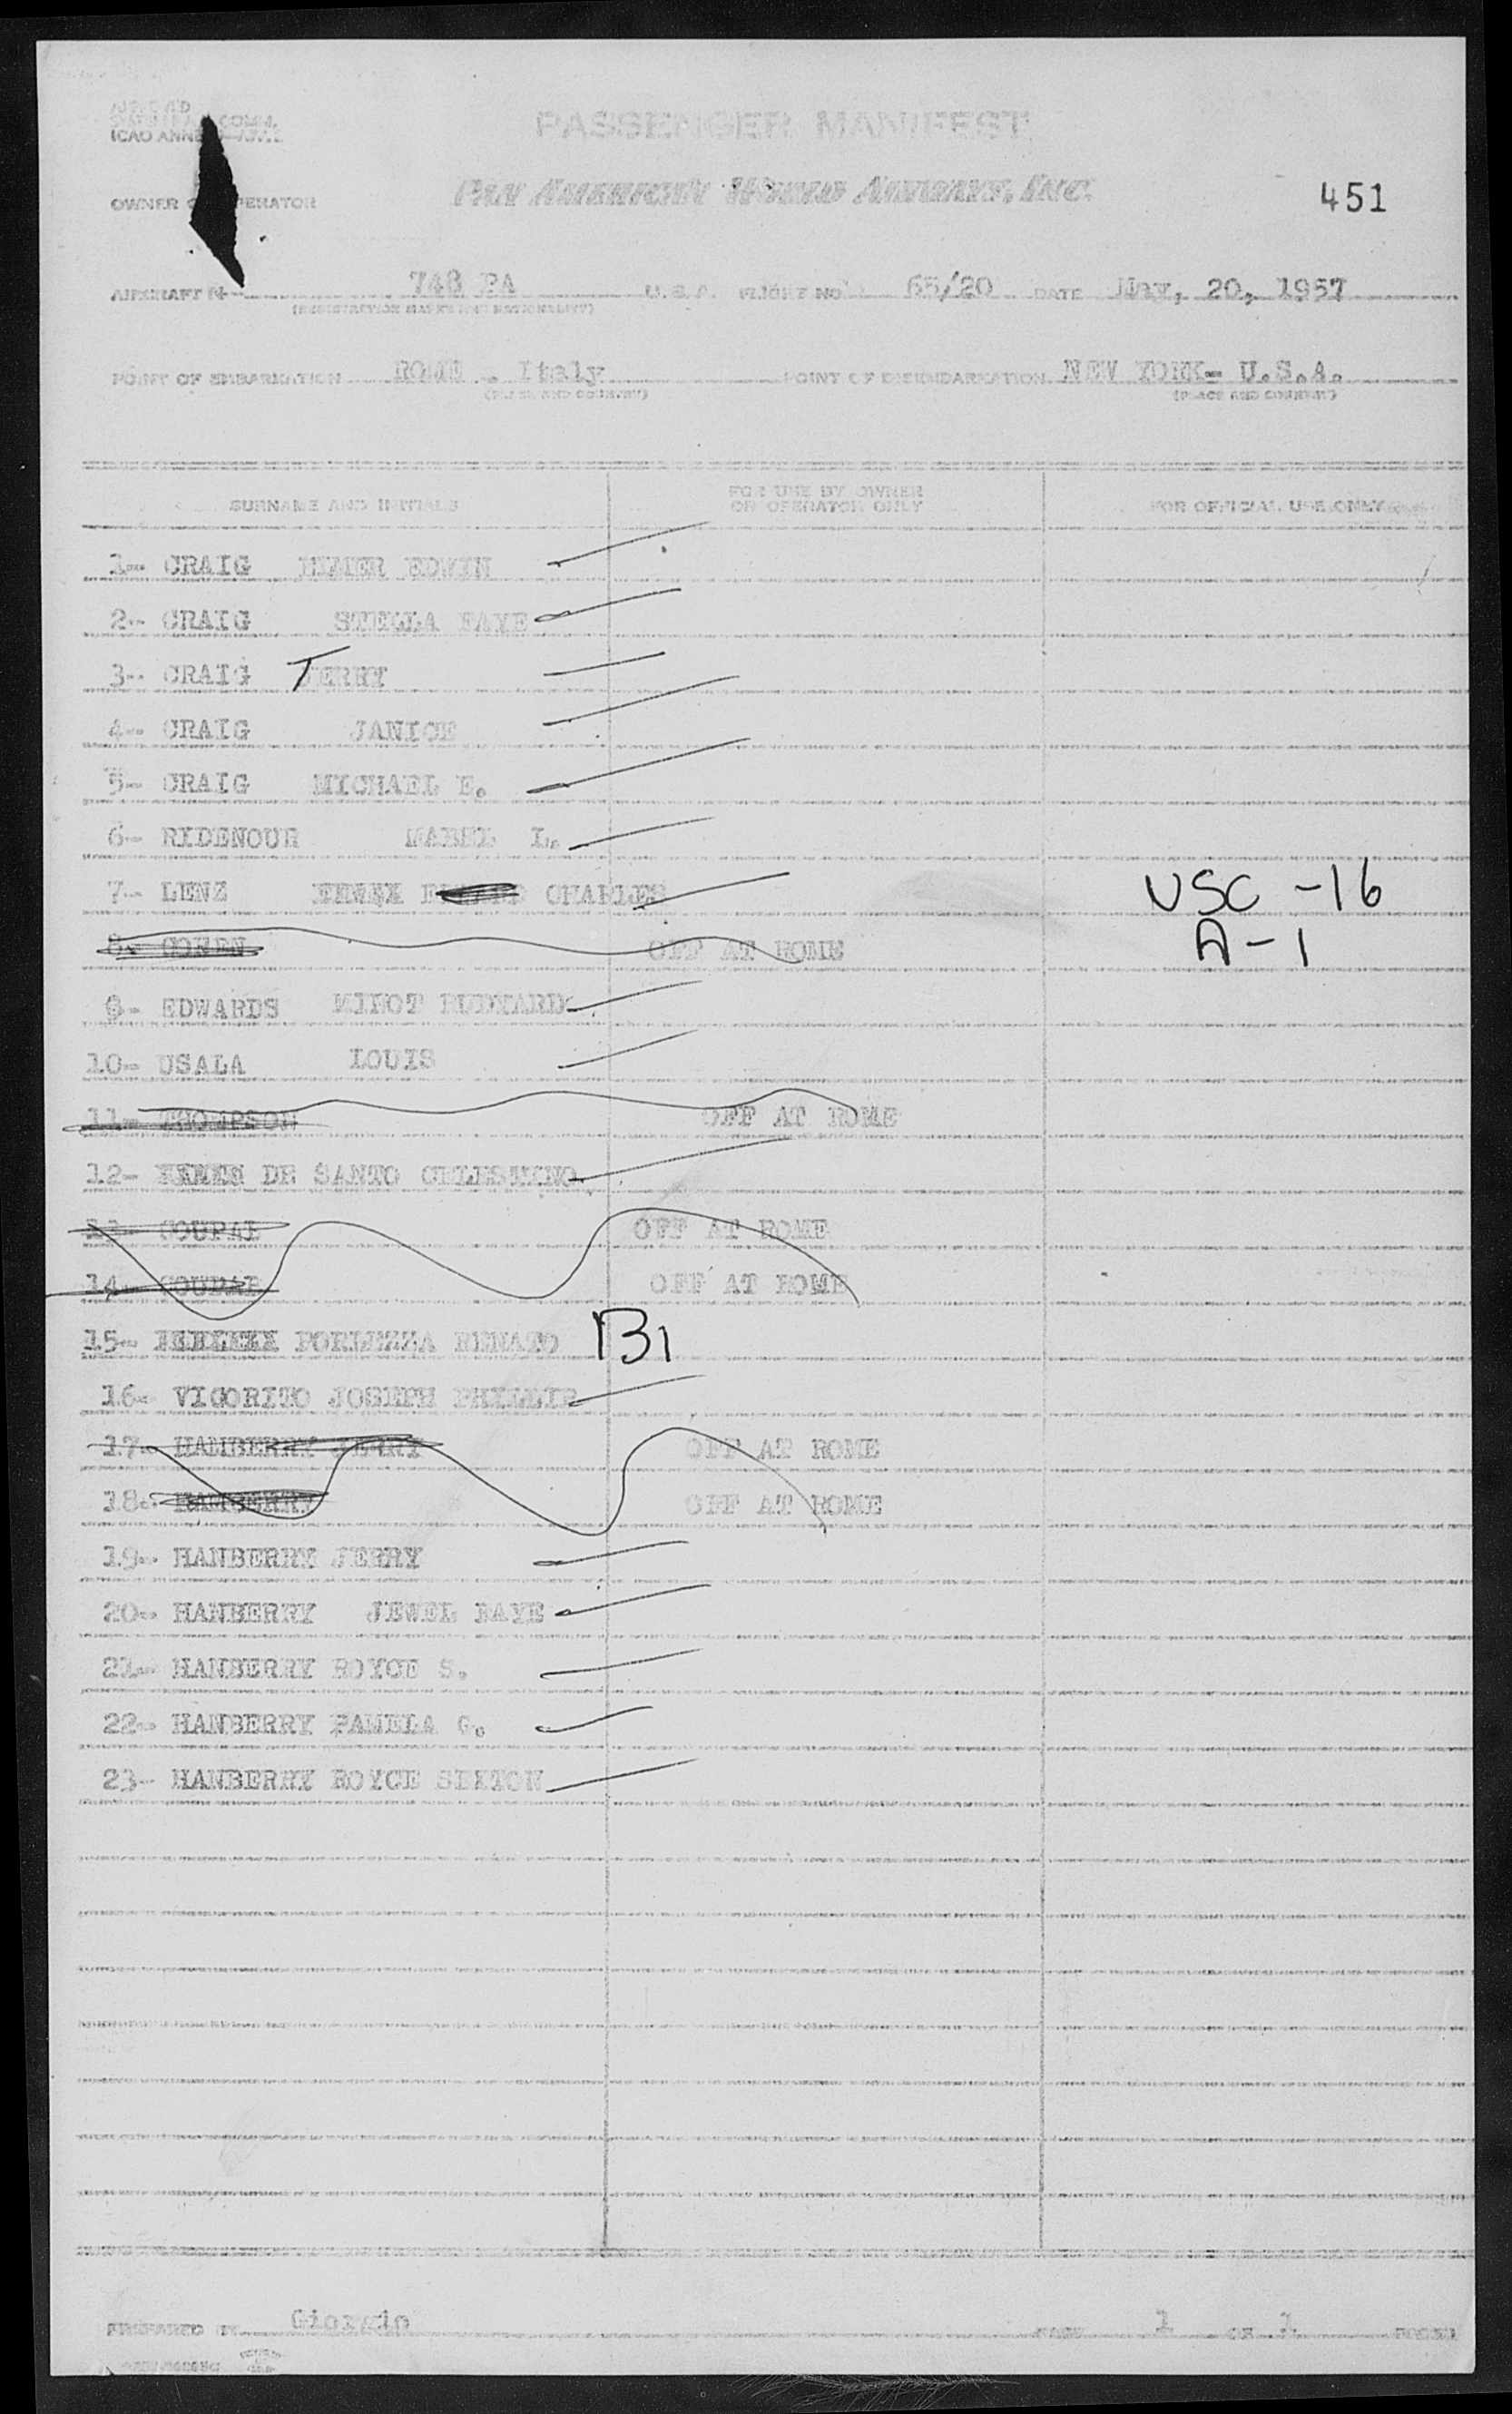 ICAO ANNE
PASSENGER MANIFEST
OWNER O PERATOR
PAN AMERICAN WORLD AIRWAYS, INC.
451
AIRCRAFT N- 748 PA U.S.A. FLIGHT NO 65/20 DATE May, 20, 1957
(REGISTRATION MARKS AND NATIONALITY)
POINT OF EMBARKATION ROME . Italy POINT OF DISEMBARKATION NEW YORK- U.S.A.
(PLACE AND COUNTRY) (PLACE AND COUNTRY)
SURNAME AND INITIALS
FOR USE BY OWNER
OR OPERATOR ONLY
FOR OFFICIAL USE ONLY
1- CRAIG ELMER EDWIN
2- CRAIG STELLA FAYE
3- CRAIG TERRY
4- CRAIG JANICE
5- CRAIG MICHAEL E.
6- RIDENOUR MABEL L.
7- LENZ CHARLES
USC -16
8- COHEN OFF AT ROME
A-1
9- EDWARDS MINOT
10- USALA LOUIS
11- THOMPSON OFF AT ROME
12- DE SANTO CELESTINO
13- COUPAR OFF AT ROME
14- COUPAR OFF AT ROME
15- PORLEZZA RENATO B1
16- VIGORITO JOSEPH PHILLIP
17- HANBERRY JERRY OFF AT ROME
18- HANBERRY OFF AT ROME
19- HANBERRY JERRY
20- HANBERRY JEWEL FAYE
21- HANBERRY ROYCE S.
22- HANBERRY PAMELA G.
23- HANBERRY ROYCE SEXTON
PREPARED BY Giorgio PAGE 1 OF 1 PAGES